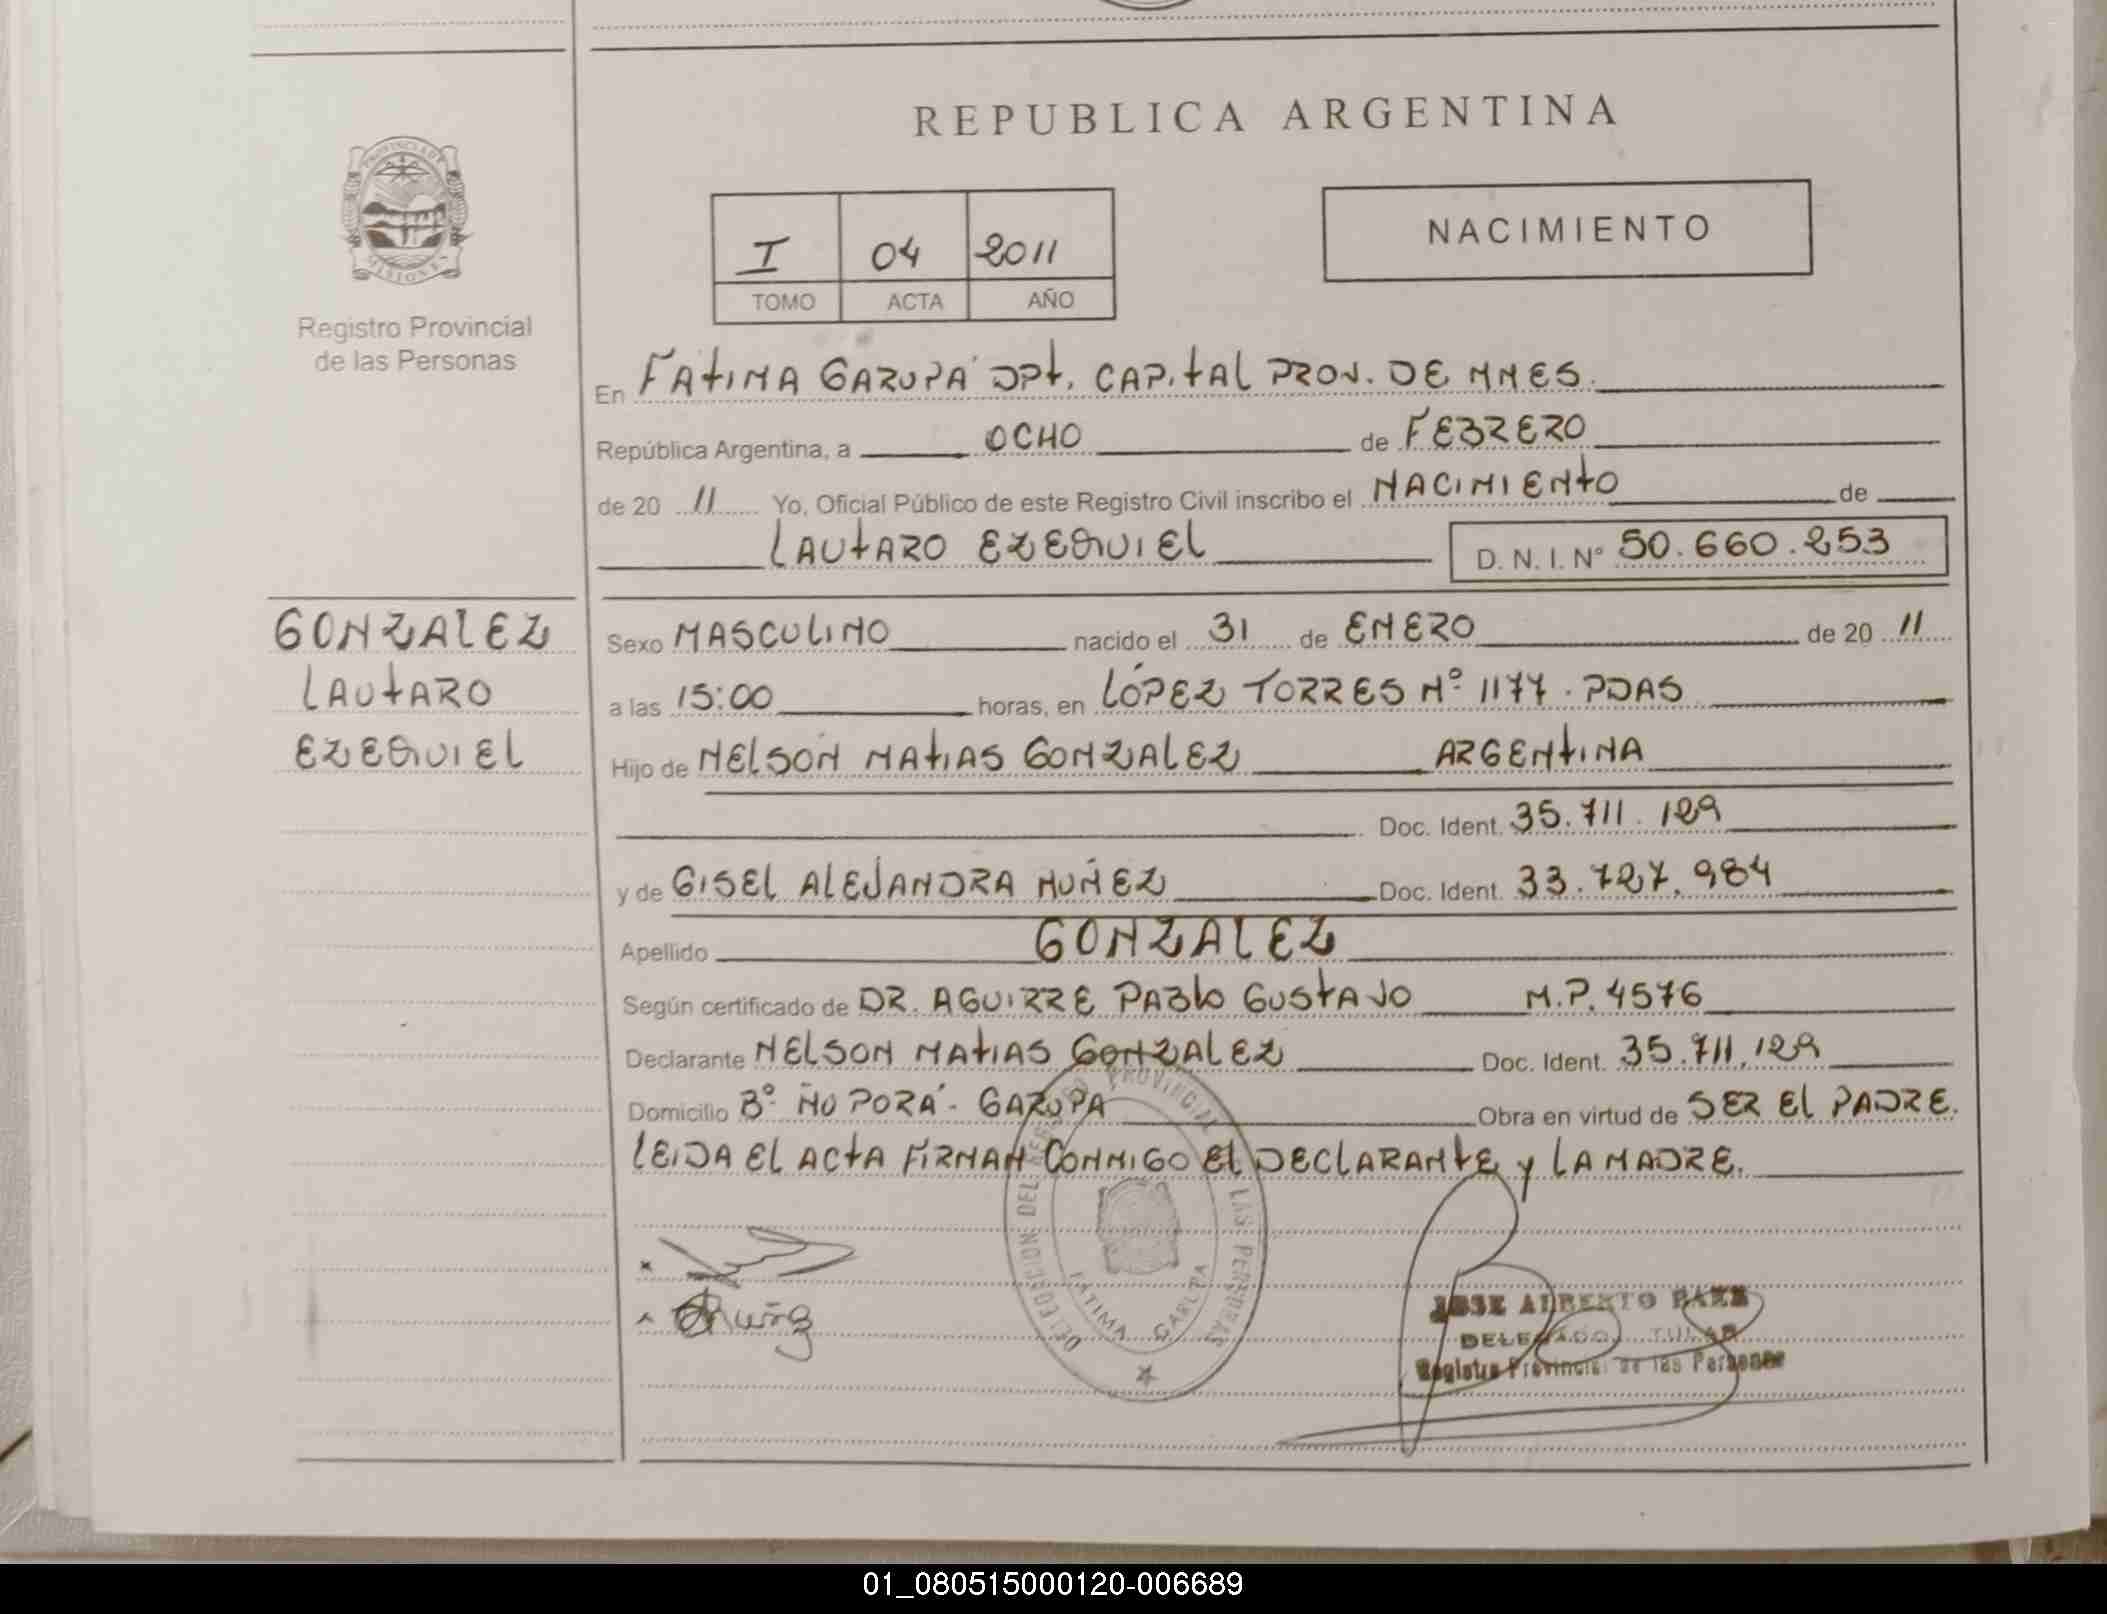 REPUBLICA ARGENTINA
PROVINCIA DE MISIONES
Registro Provincial
de las Personas
I 04 2011
TOMO ACTA AÑO
NACIMIENTO
En FATIMA GARUPA DPt. CAPITAL PROV. DE MNES.
República Argentina, a OCHO de FEBRERO
de 20 11 Yo, Oficial Público de este Registro Civil inscribo el NACIMIENTO de
LAUTARO EZEQUIEL D. N. I. Nº 50.660.253
GONZALEZ
LAUTARO
EZEQUIEL
Sexo MASCULINO nacido el 31 de ENERO de 20 11
a las 15:00 horas, en LÓPEZ TORRES Nº 1177. PDAS
Hijo de NELSON MATIAS GONZALEZ ARGENTINA
Doc. Ident. 35.711.129
y de GISEL ALEJANDRA MUÑEZ Doc. Ident. 33.727.984
Apellido GONZALEZ
Según certificado de DR. AGUIRRE PABLO GUSTAVO M.P. 4576
Declarante NELSON MATIAS GONZALEZ Doc. Ident. 35.711.129
Domicilio Bº ÑU PORÁ - GARUPA Obra en virtud de SER EL PADRE.
LEIDA EL ACTA FIRMAN CONMIGO EL DECLARANTE y LA MADRE.
DELEGACION DEL REGISTRO PROVINCIAL DE LAS PERSONAS
FATIMA GARUPA
JOSE ALBERTO BAEZ
DELEGADO TITULAR
Registro Provincial de las Personas
01_080515000120-006689